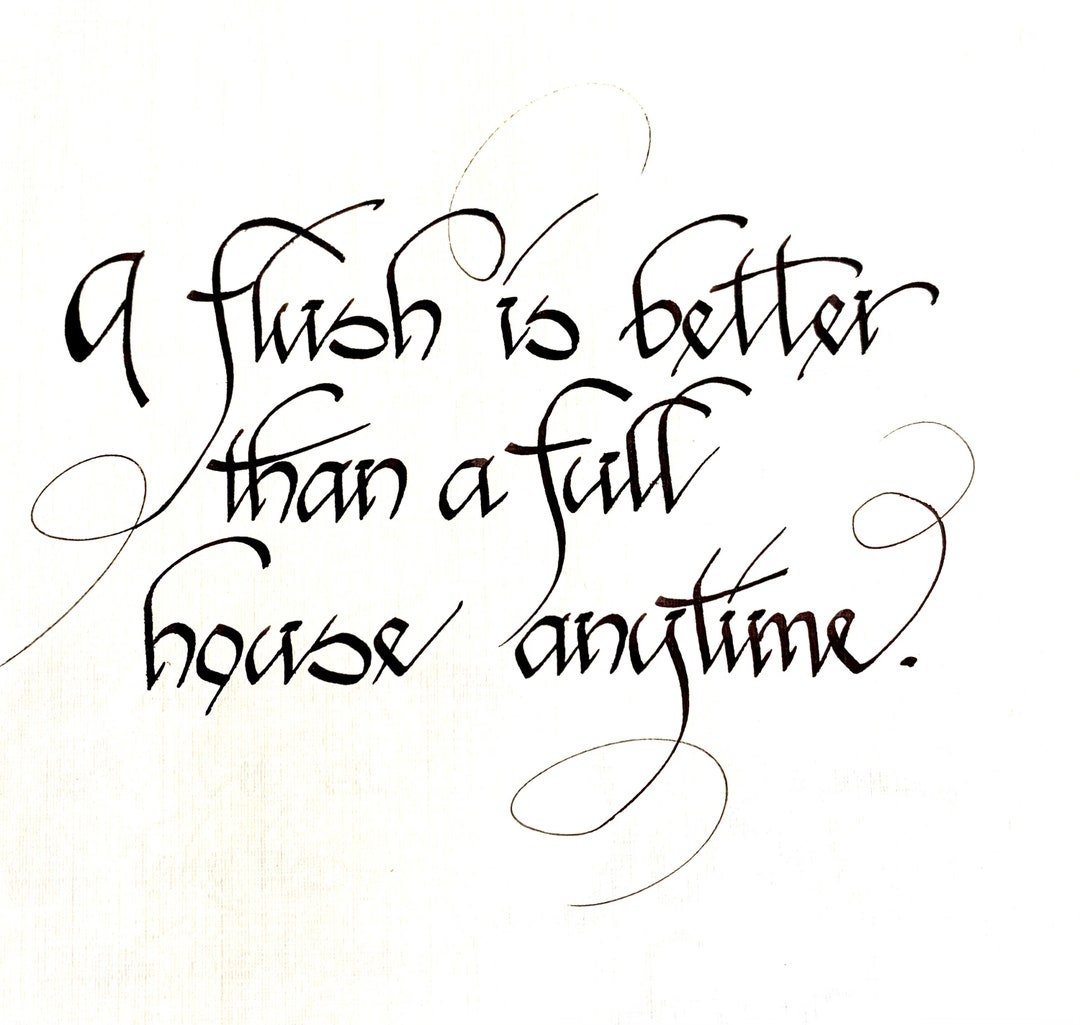 a flush is better
than a full
house anytime.